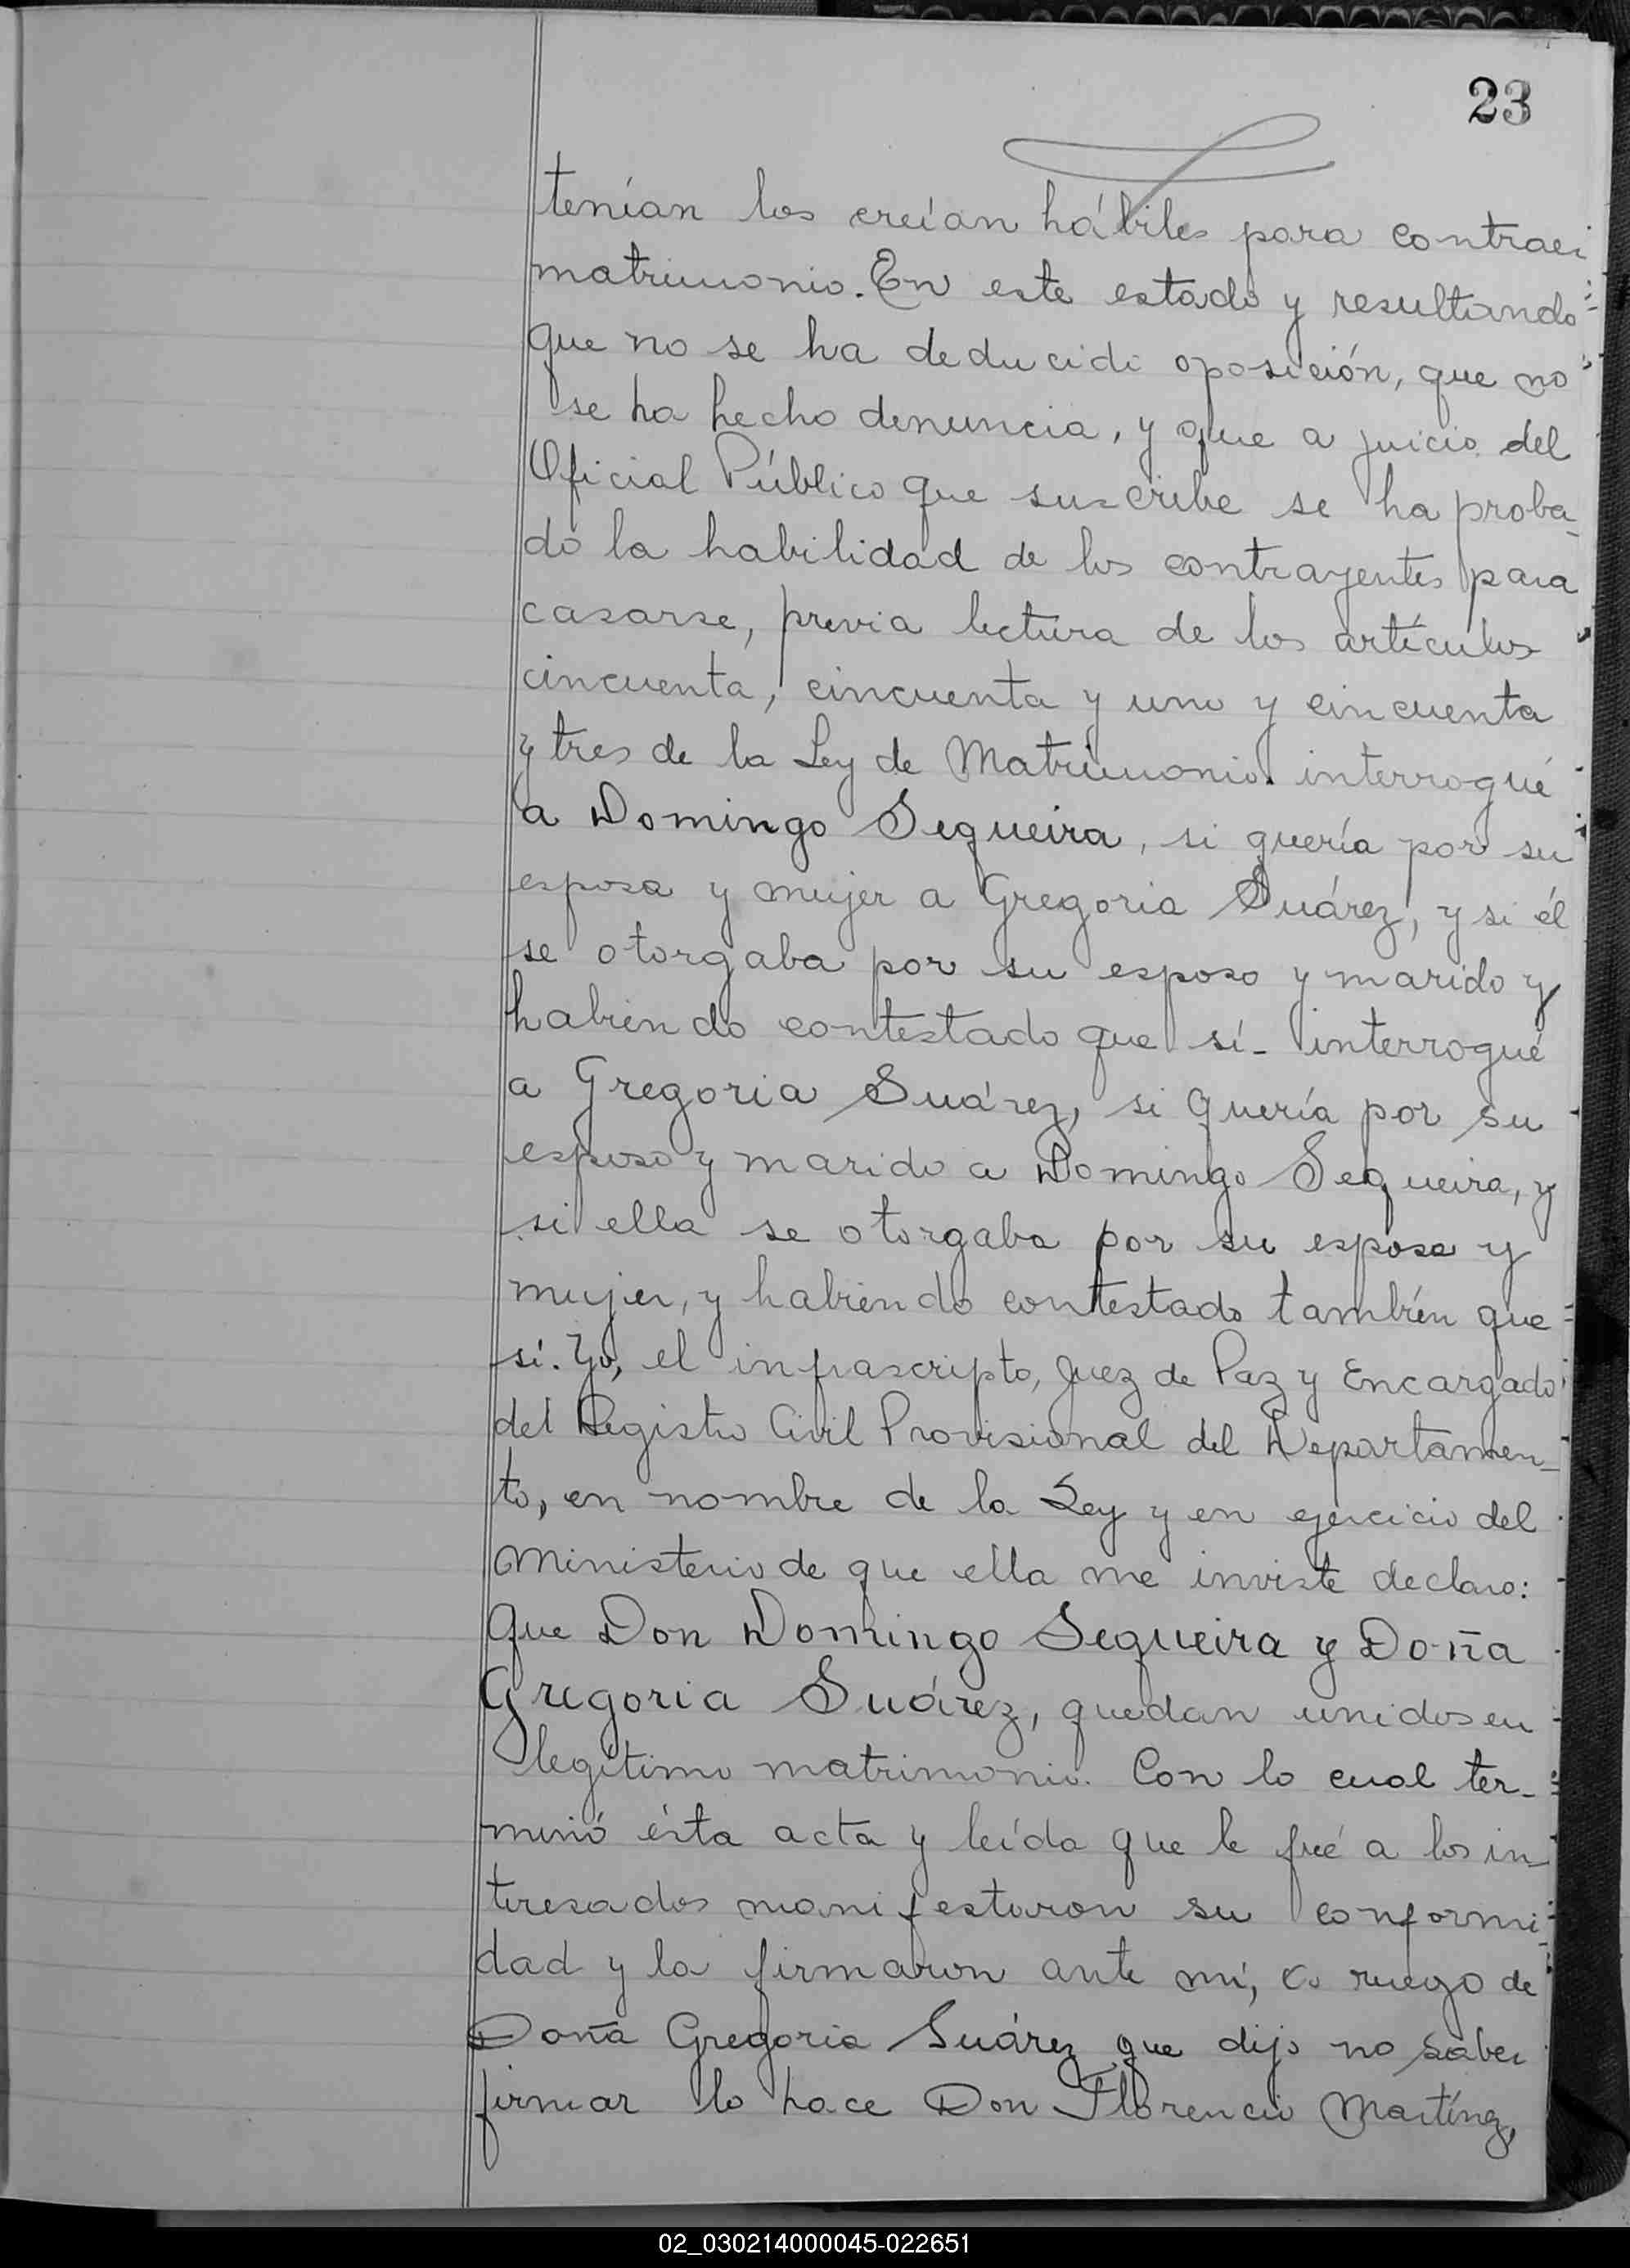 23
tenían los creían hábiles para contraer
matrimonio. En este estado y resultando
que no se ha deducido oposición, que no
se ha hecho denuncia, y que a juicio del
Oficial Público que suscribe se ha proba-
do la habilidad de los contrayentes para
casarse, previa lectura de los artículos
cincuenta, cincuenta y uno y cincuenta
y tres de la Ley de Matrimonio. interrogué
a Domingo Sequeira, si quería por su
esposa y mujer a Gregoria Suárez, y si él
se otorgaba por su esposo y marido y
habiendo contestado que sí- interrogué
a Gregoria Suárez, si quería por su
esposo y marido a Domingo Sequeira, y
si ella se otorgaba por su esposa y
mujer, y habiendo contestado también que
sí. Yo, el infrascripto, Juez de Paz y Encargado
del Registro Civil Provisional del Departamen-
to, en nombre de la Ley y en ejercicio del
Ministerio de que ella me inviste declaro:
Que Don Domingo Sequeira y Doña
Gregoria Suárez, quedan unidos en
legítimo matrimonio. Con lo cual ter-
minó ésta acta y leída que le fué a los in-
teresados manifestaron su conformi-
dad y la firmaron ante mí, a ruego de
Doña Gregoria Suárez que dijo no saber
firmar lo hace Don Florencio Martínez,
02_030214000045-022651